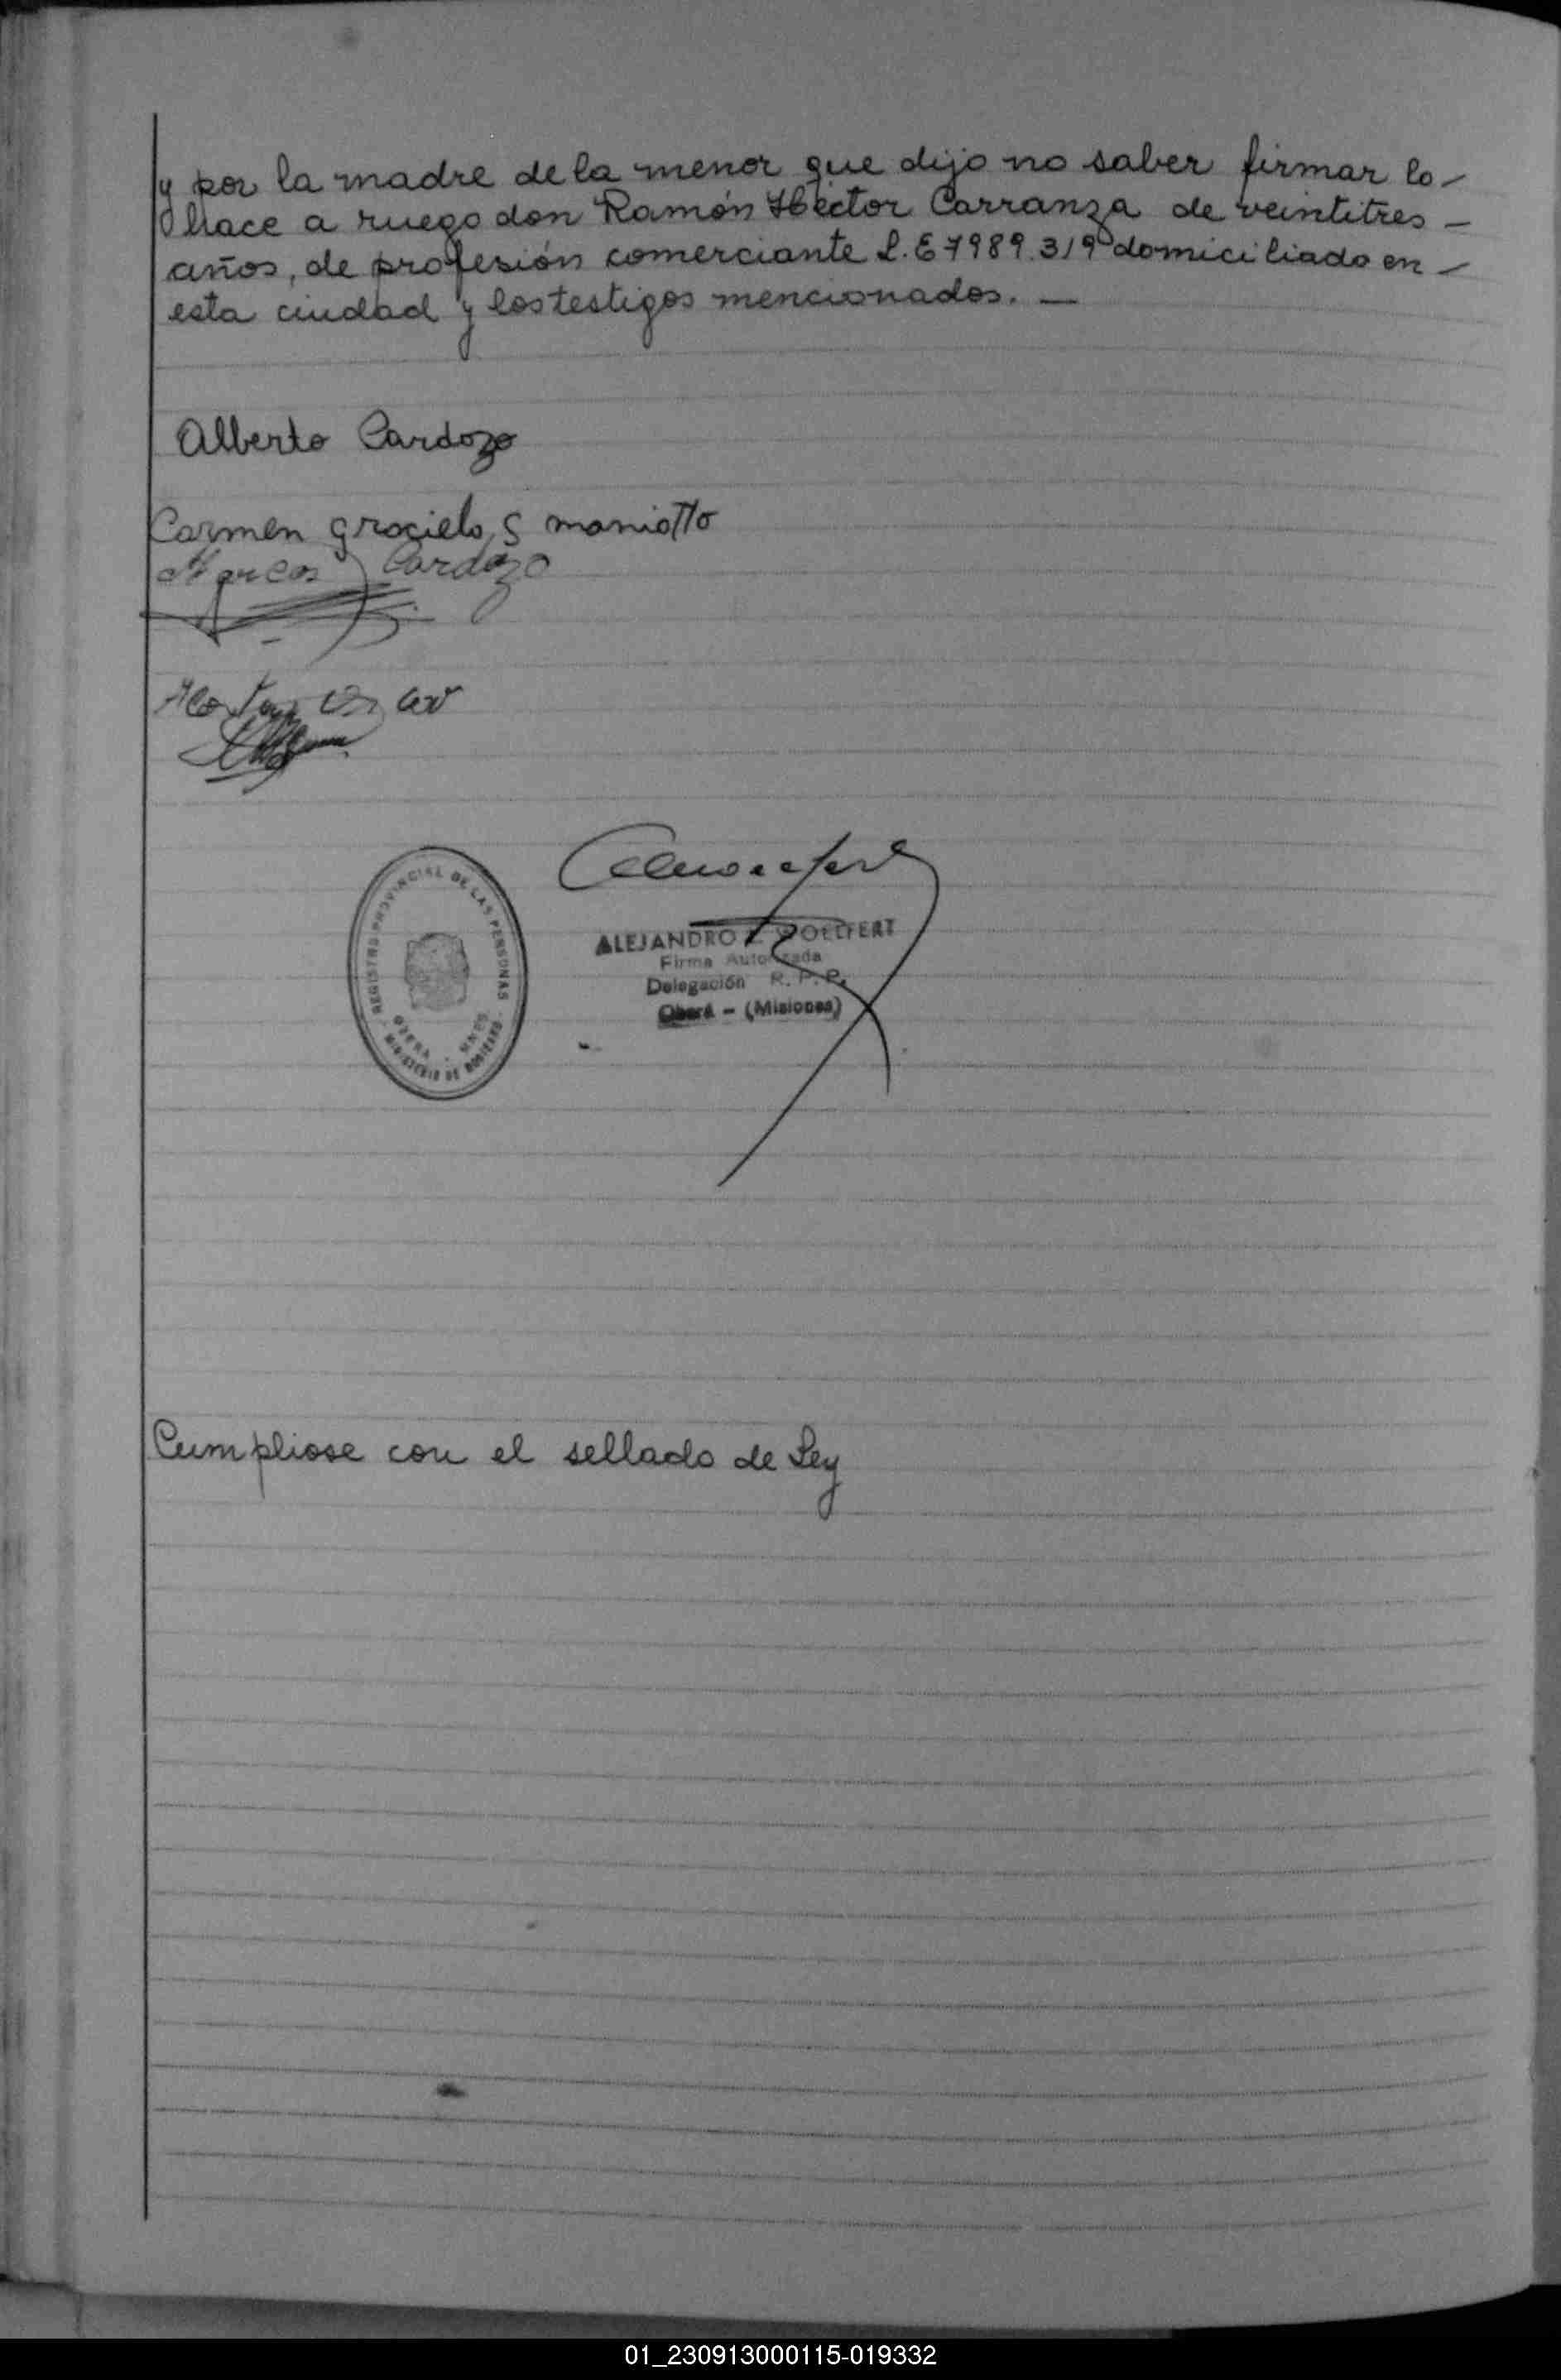 y por la madre de la menor que dijo no saber firmar lo-
hace a ruego don Ramón Héctor Carranza de veintitres -
años, de profesión comerciante L.E 7989.319 domiciliado en -
esta ciudad y los testigos mencionados. —
Alberto Cardozo
Carmen graciela S maniotto
Marcos Cardozo
REGISTRO PROVINCIAL DE LAS PERSONAS
OBERA - MNES
MINISTERIO DE GOBIERNO
ALEJANDRO WOLLFERT
Firma Autorizada
Delegación R. P. P.
Oberá - (Misiones)
Cumpliose con el sellado de Ley
01_230913000115-019332